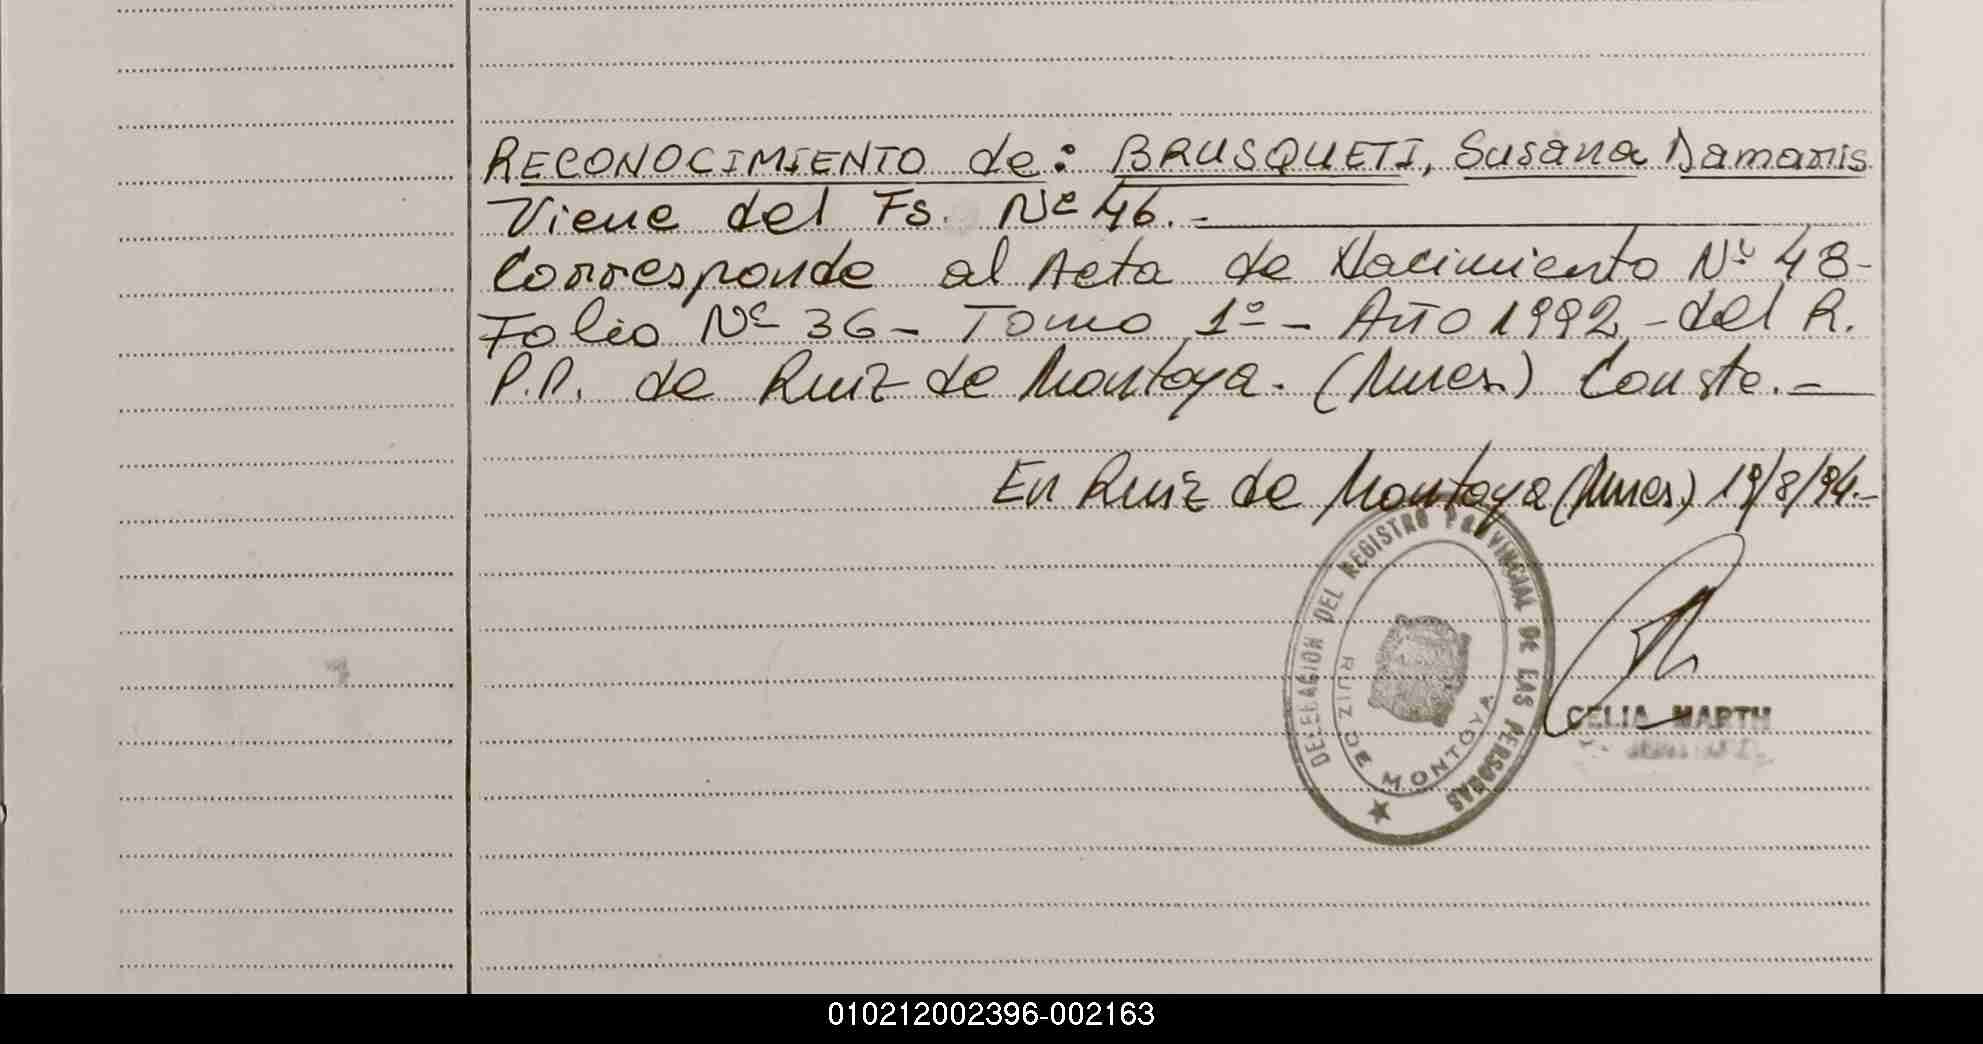 RECONOCIMIENTO de: BRUSQUETI, Susana Damaris
Viene del Fs. Nº 46.-
Corresponde al Acta de Nacimiento Nº 48-
Folio Nº 36- Tomo 1º- Año 1992-del R.
P.P. de Ruiz de Montoya. (Mnes.) Conste.-
En Ruiz de Montoya (Mnes.) 19/8/94.-
DELEGACION DEL REGISTRO PROVINCIAL DE LAS PERSONAS
RUIZ DE MONTOYA
CELIA MARTH
010212002396-002163